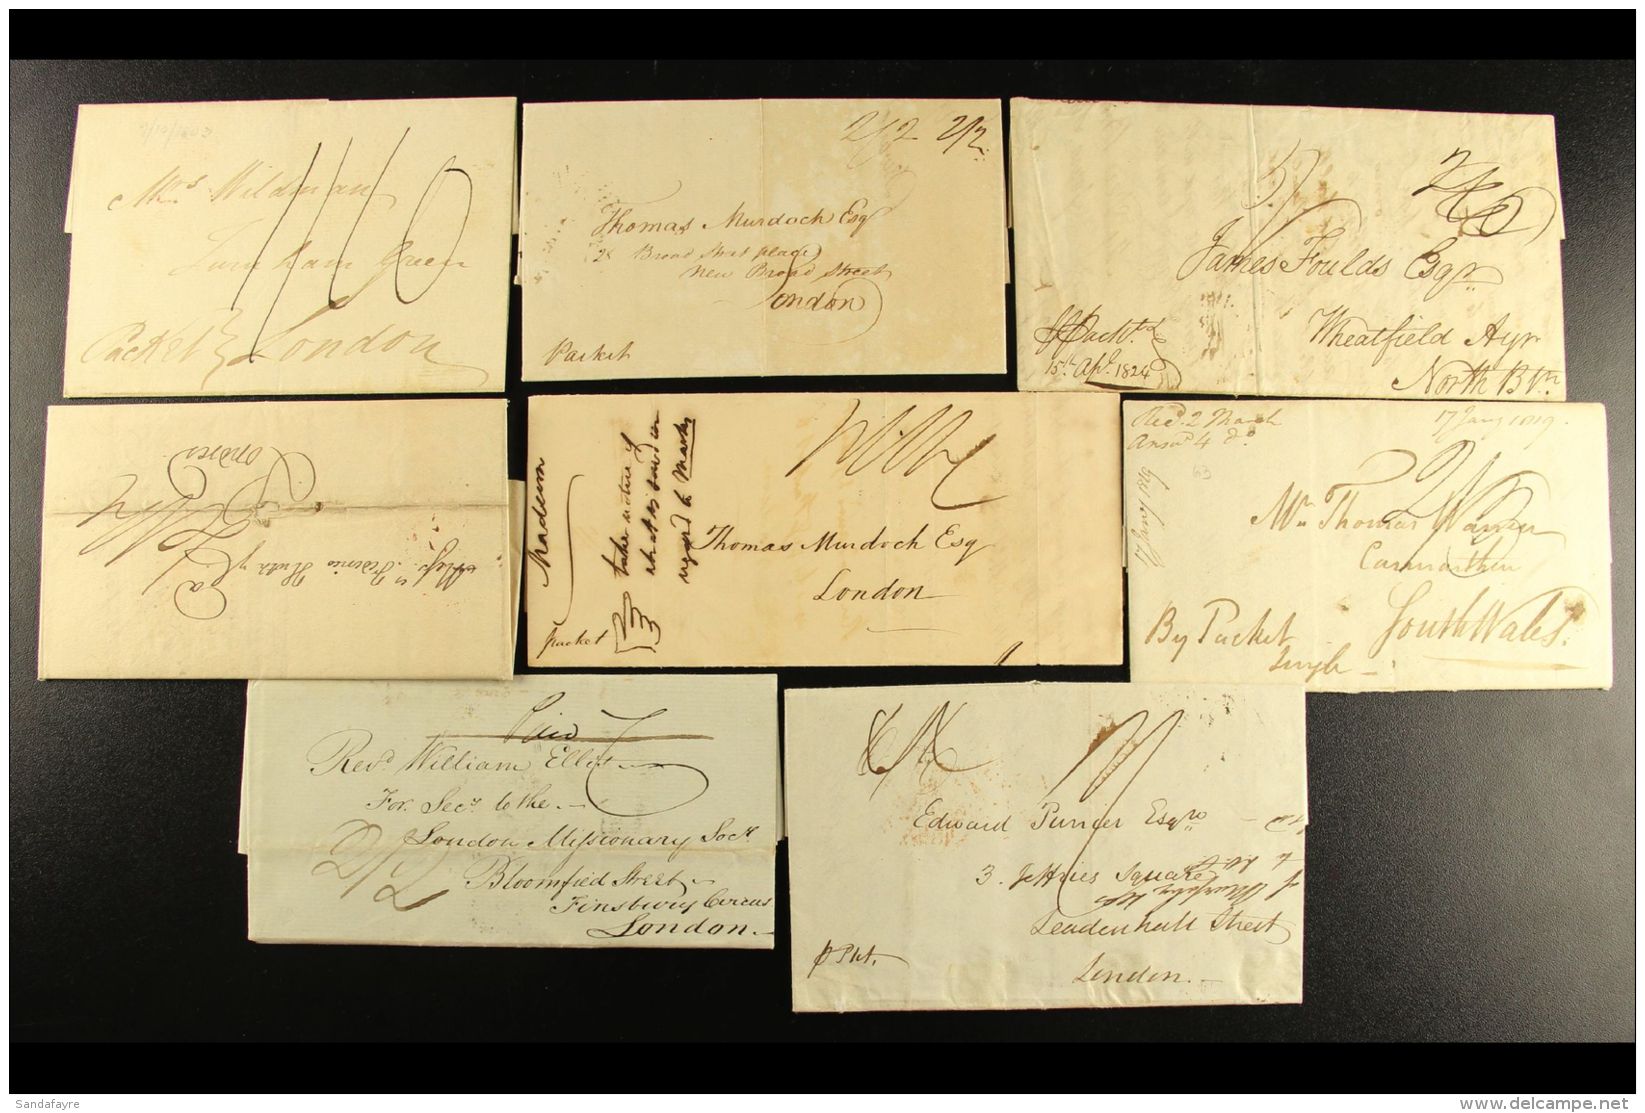 7/10/1803
Mrs Wildman
Turnham Green
Packet London
1/10
2/2 2/2
Thomas Murdoch Esq
Broad Street place
New Broad Street
London
Packet
James Foulds Esqr.
Wheatfield Ayr
North Bn.
15th Apl. 1824
Londres
Madeira
take notice of
what is said in
regard to Marks
packet
Thomas Murdoch Esq
London
Recd. 2 March
Answd 4 do
17 Jany 1819.
63
17 Jany 1819
Mr. Thomas Warren
Carmarthen
South Wales.
By Packet
Single
Paid
Revd. William Ellis
For. Secy. to the
London Missionary Socy.
Bloomfield Street
Finsbury Circus
London.
2/2
Edward Purser Esqre
3. Jeffries Square
Leadenhall Street
London.
p Pkt.
Sandafayre
www.delcampe.net